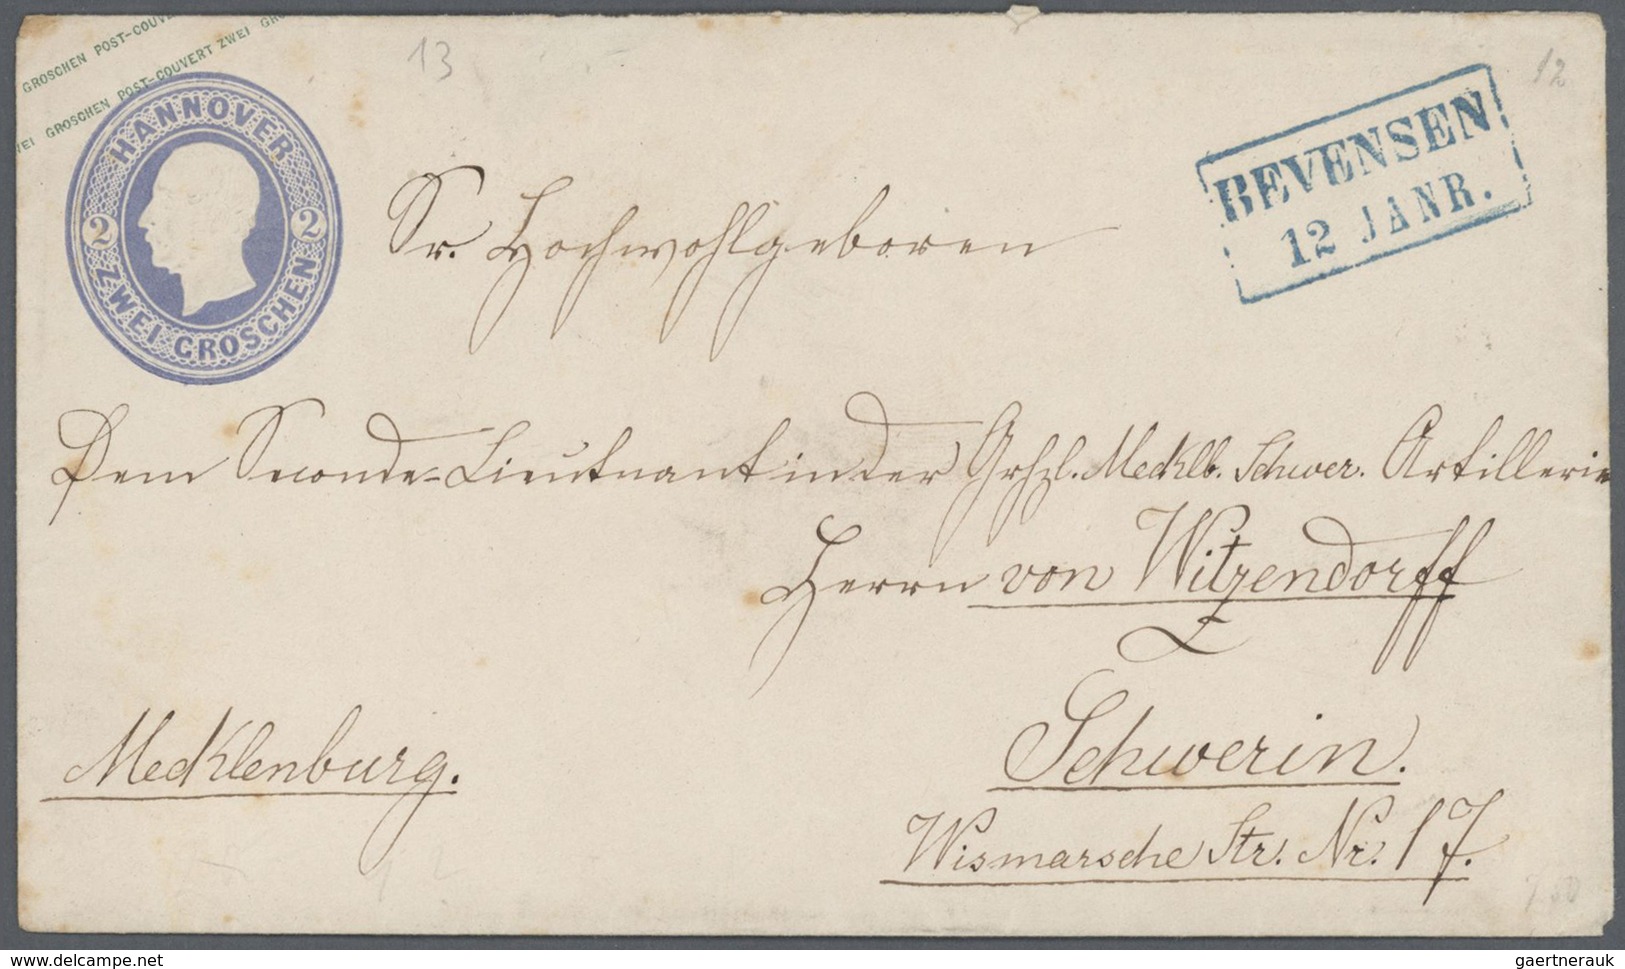 GROSCHEN POST-COUVE
VEI GROSCHEN POST-COUVERT ZWEI GRO
HANNOVER
2 2
ZWEI GROSCHEN
13
12
BEVENSEN
12 JANR.
Sr. Hochwohlgeboren
Dem Seconde-Lieutnant in der Grhzl. Mecklb. Schwer. Artillerie
Herrn von Witzendorff
Schwerin.
Mecklenburg.
Wismarsche Str. Nr. 17.
www.delcampe.net
gaertnerauk